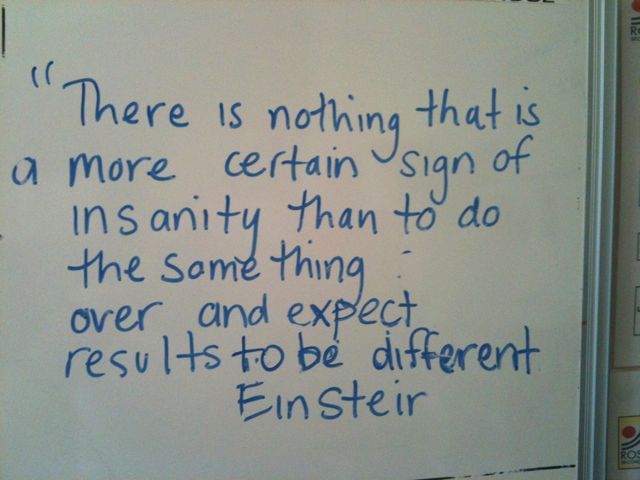 "There is nothing that is
a more certain sign of
insanity than to do
the same thing
over and expect
results to be different
Einsteir
ROS